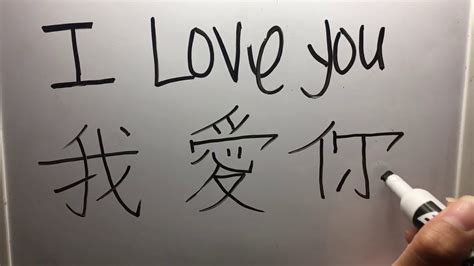 I Love you
我愛你